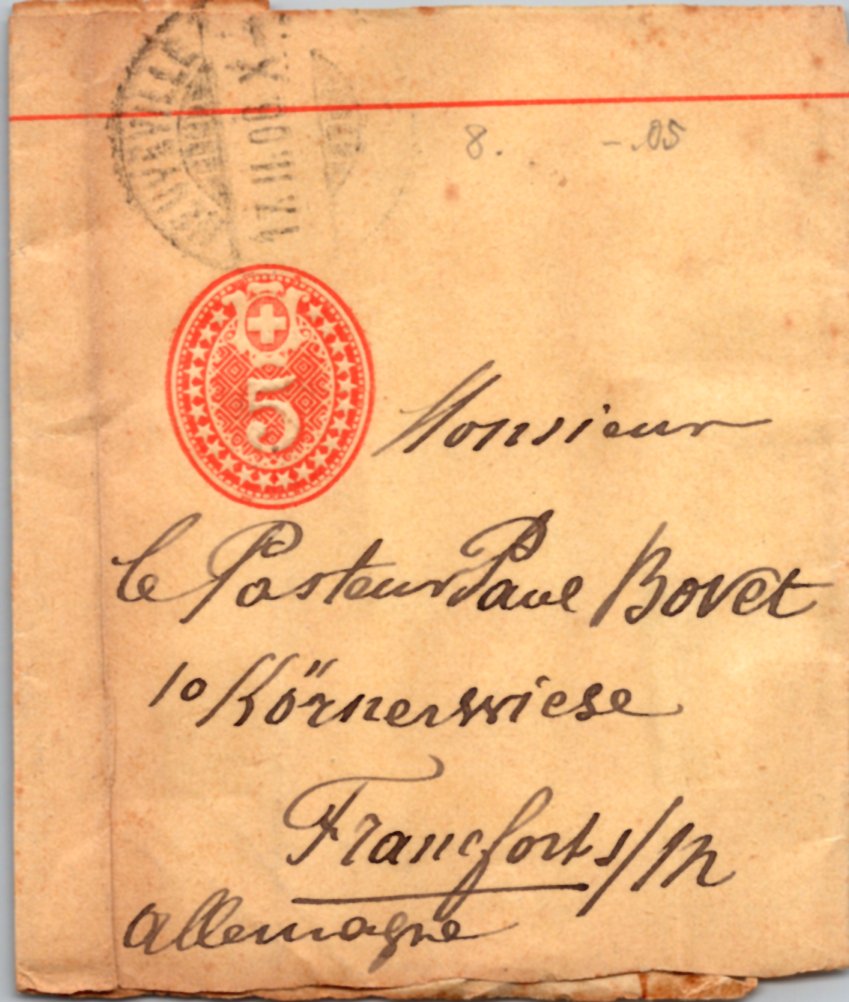 17.III.06 X
8. -.05
5
Monsieur
le Pasteur Paul Bovet
10 Körnerwiese
Francfort s/M
Allemagne